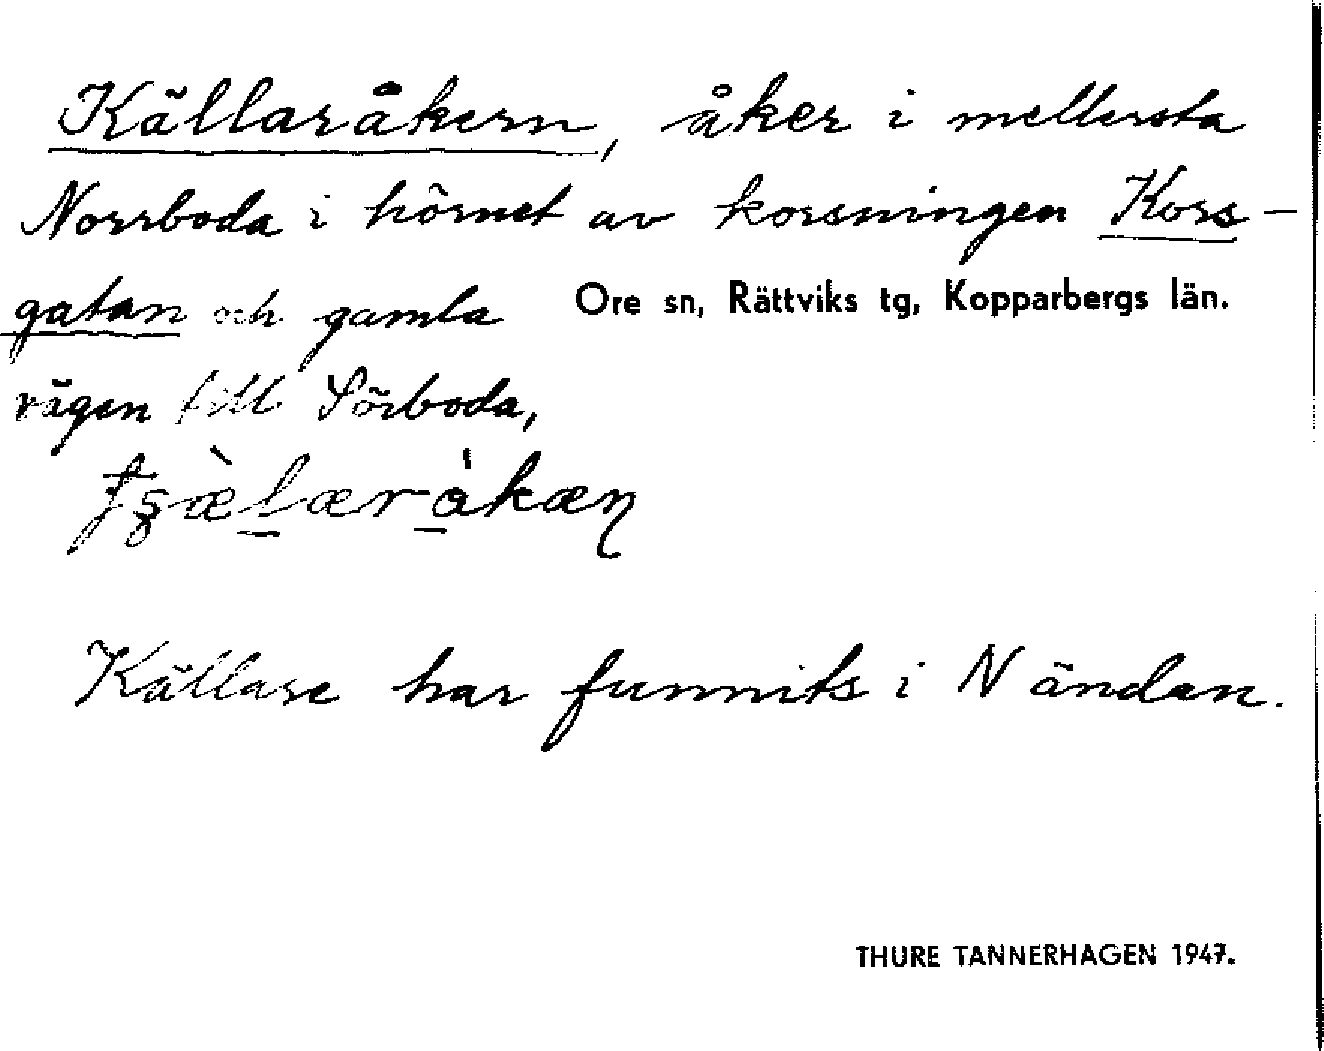 Källaråkern, åker i mellersta
Norrboda i hörnet av korsningen Kors-
gatan och gamla
Ore sn, Rättviks tg, Kopparbergs län.
vägen till Sörboda,
Källare har funnits i N ändan.
THURE TANNERHAGEN 1947.